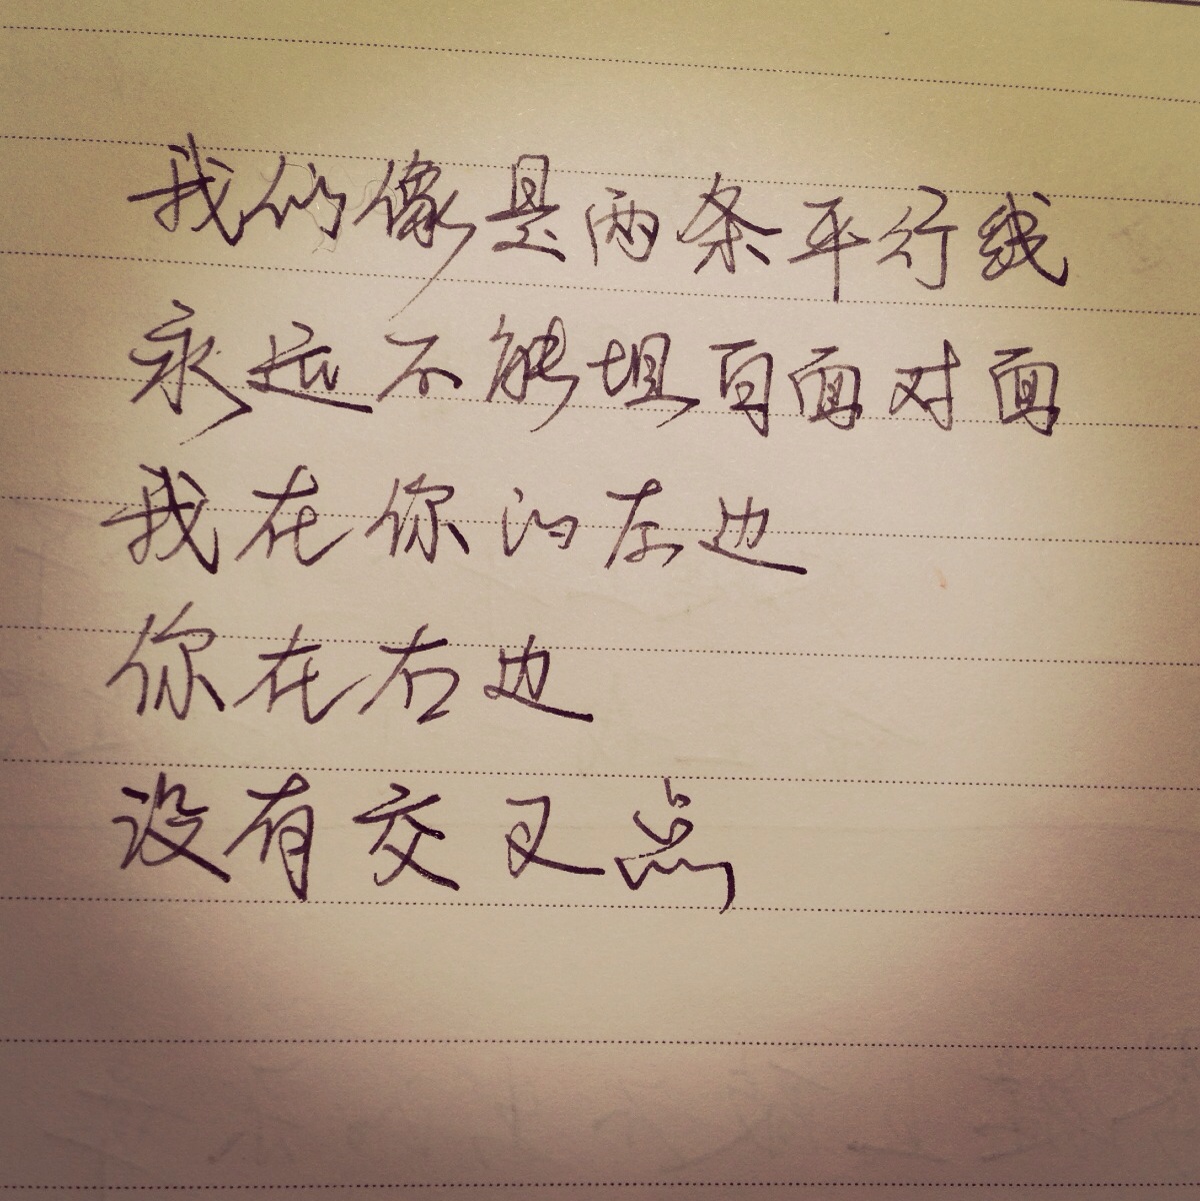 我们像是两条平行线
永远不能坦白面对面
我在你的左边
你在右边
没有交叉点